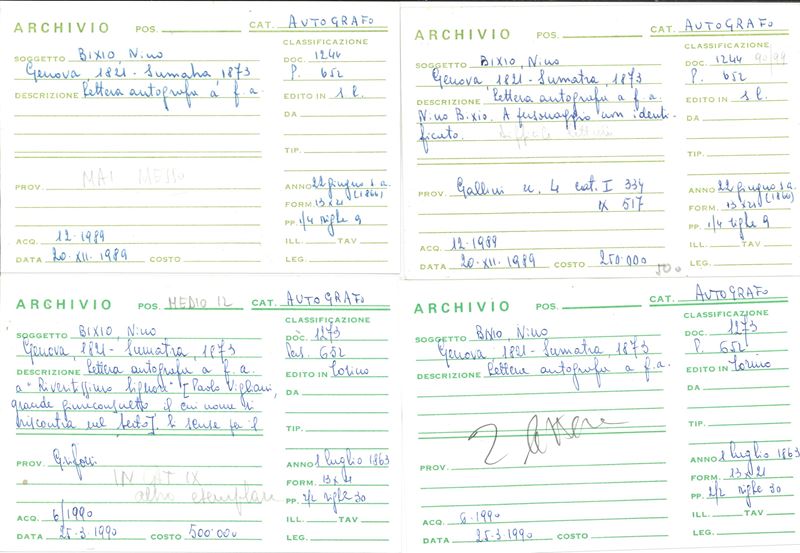 ARCHIVIO POS. CAT. AUTOGRAFO
CLASSIFICAZIONE
SOGGETTO BIXIO, Nino DOC. 1244
Genova, 1821 - Sumatra 1873 P. 652
DESCRIZIONE Lettera autografa a f.a. EDITO IN s.l.
DA
TIP.
MAI MESSO
PROV. ANNO 22 giugno s.a. (1860)
FORM. 13x21
PP. 1/4 righe 9
ACQ. 12-1989 ILL. TAV.
DATA 20-XII-1989 COSTO LEG.
ARCHIVIO POS. CAT. AUTOGRAFO
CLASSIFICAZIONE
SOGGETTO BIXIO, Nino DOC. 1244
Genova, 1821 - Sumatra, 1873 P. 652
DESCRIZIONE Lettera autografa a f.a. EDITO IN s.l.
Nino Bixio. A personaggio non identi- DA
ficato.
TIP.
PROV. Gallini n. 4 cat. I 334 ANNO 22 giugno s.a. (1860)
IX 517 FORM. 13x21
PP. 1/4 righe 9
ACQ. 12-1989 ILL. TAV.
DATA 20-XII-1989 COSTO 250.000 LEG.
ARCHIVIO POS. MEDIO 12 CAT. AUTOGRAFO
CLASSIFICAZIONE
SOGGETTO BIXIO, Nino DOC. 1273
Genova, 1821 - Sumatra, 1873 652
DESCRIZIONE Lettera autografa a f.a. EDITO IN Torino
a "Riveritissimo Signore" [Paolo Vigliani, DA
grande giureconsulto il cui nome si
riscontra nel testo]. Si scusa per il TIP.
PROV. Grifoni ANNO 1 luglio 1863
IX FORM. 13x21
altro esemplare PP. 2/2 righe 30
ACQ. 6/1990 ILL. TAV.
DATA 25-3-1990 COSTO 500.000 LEG.
ARCHIVIO POS. CAT. AUTOGRAFO
CLASSIFICAZIONE
SOGGETTO BIXIO, Nino DOC. 1273
Genova, 1821 - Sumatra, 1873 P. 652
DESCRIZIONE Lettera autografa a f.a. EDITO IN Torino
DA
TIP.
2 lettere
PROV. ANNO 1 luglio 1863
FORM. 13x21
PP. 2/2 righe 30
ACQ. 6-1990 ILL. TAV.
DATA 25-3-1990 COSTO LEG.